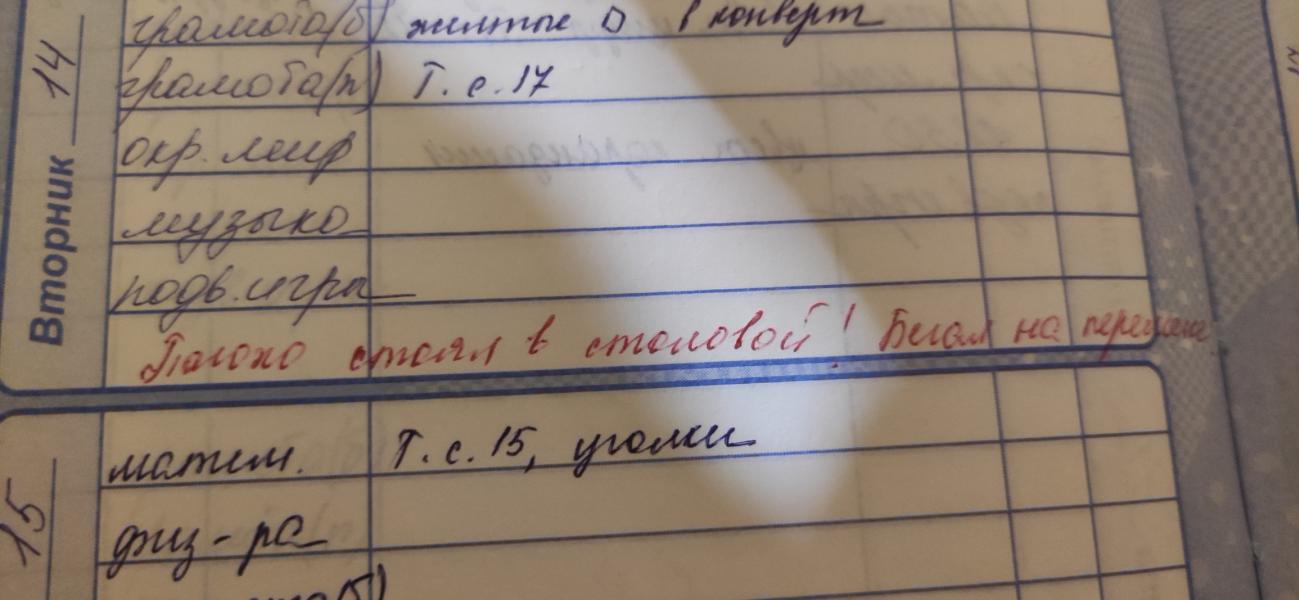 грамота(б) желтые D в конверт
Вторник 14
грамота(п) Т. с. 17
окр. мир
музыка
подв. игра
Плохо стоял в столовой! Бегал на перемене
15
матем. Т. с. 15, уголки
физ-ра